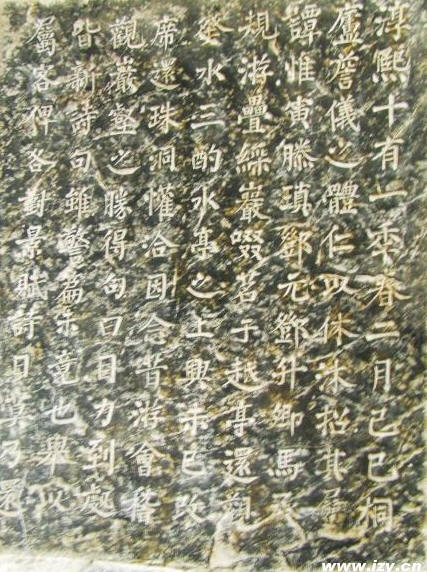 淳熙十有一年春二月己巳桐
廬詹儀之體仁以休沐招其屬
譚惟寅滕瑱鄧元鄧升卿馬
規游疊綵巖啜茗于越亭還觀
水三酌水亭之上興未已改
席還珠洞懽合因念昔游會稽
觀巖壑之勝得句曰目力到處
皆新詩句雖警篇未竟也舉以
屬客俾各對景賦詩日莫乃還
www.izy.cn